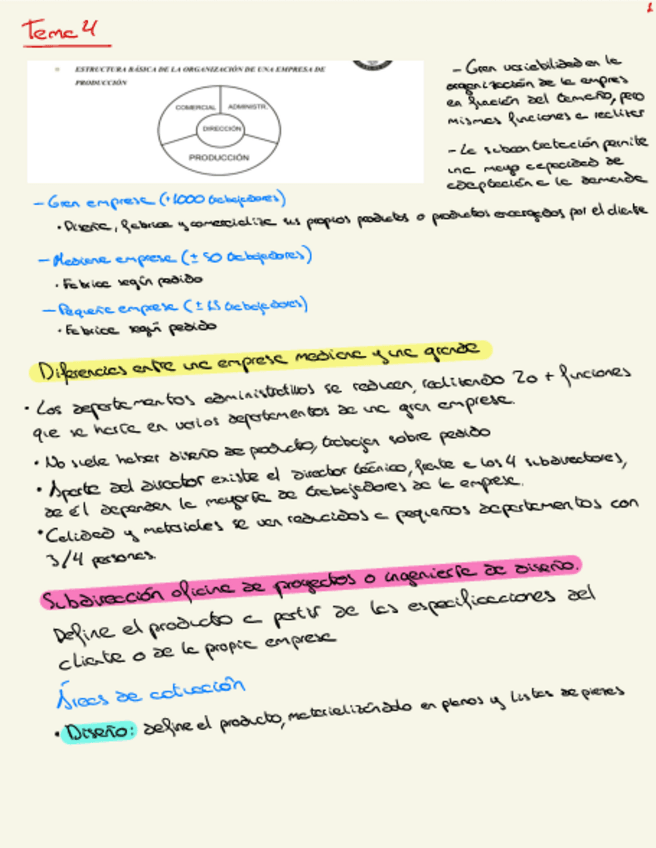 1
Tema 4
ESTRUCTURA BÁSICA DE LA ORGANIZACIÓN DE UNA EMPRESA DE
PRODUCCIÓN
COMERCIAL
ADMINISTR.
DIRECCIÓN
PRODUCCIÓN
- Gran variabilidad en la
organización de la empres
en función del tamaño, pero
mismas funciones a realizar
- La subcontratación permite
una mayo capacidad de
adaptación a la demanda
- Gran empresa (+1000 trabajadores)
• Diseña, fabrica y comercializa sus propios productos o productos encargados por el cliente
- Mediana empresa (± 50 trabajadores)
• Fabrica según pedido
- Pequeña empresa (± 15 trabajadores)
• Fabrica según pedido
Diferencias entre una empresa mediana y una grande
• Los departamentos administrativos se reducen, realizando 2 o + funciones
que se haría en varios departamentos de una gran empresa.
• No suele haber diseño de producto, trabajan sobre pedido
• Aparte del director existe el director técnico, frente a los 4 subdirectores,
de él dependen la mayoría de trabajadores de la empresa.
• Calidad y materiales se ven reducidos a pequeños departamentos con
3/4 personas.
Subdirección oficina de proyectos o ingeniería de diseño.
Define el producto a partir de las especificaciones del
cliente o de la propia empresa
Áreas de actuación
• Diseño: define el producto, materializándolo en planos y listas de piezas